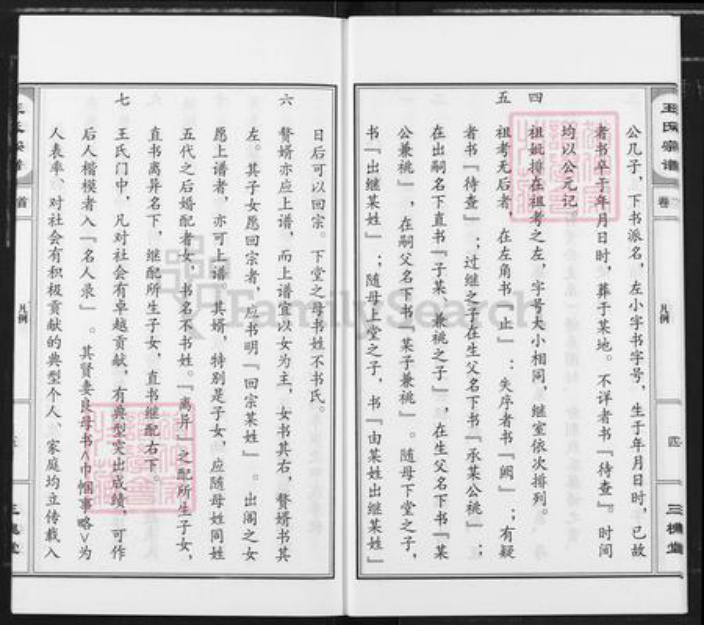 王氏宗谱
卷
凡例
四
三槐堂
公几子，下书派名，左小字书字号，生于年月日时，已故
者书卒于年月日时，葬于某地。不详者书『待查』。时间
均以公元记。
四 祖妣排在祖考之左，字号大小相同，继室依次排列。
五 祖考无后者，在左角书『止』：失序者书『阙』；有疑
者书『待查』；过继之子在生父名下书『承某公祧』；
在出嗣名下直书『子某，兼祧之子』，在生父名下书『某
公兼祧』，在嗣父名下书『某子兼祧』。随母下堂之子，
书『出继某姓』；随母上堂之子，书『由某姓出继某姓』
日后可以回宗。下堂之母书姓不书氏。
六 赘婿亦应上谱，而上谱宜以女为主，女书其右，赘婿书其
左。其子女愿回宗者，应书明『回宗某姓』。出阁之女
愿上谱者，亦可上谱。其婿，特别是子女，应随母姓同姓
五代之后婚配者女，书名不书姓。『离异』之配所生子女，
直书离异名下，继配所生子女，直书继配右下。
七 王氏门中，凡对社会有卓越贡献，有典型突出成绩，可作
后人楷模者入『名人录』。其贤妻良母书<巾帼事略>为
人表率、对社会有积极贡献的典型个人、家庭均立传载入
首
凡例
三槐堂
FamilySearch